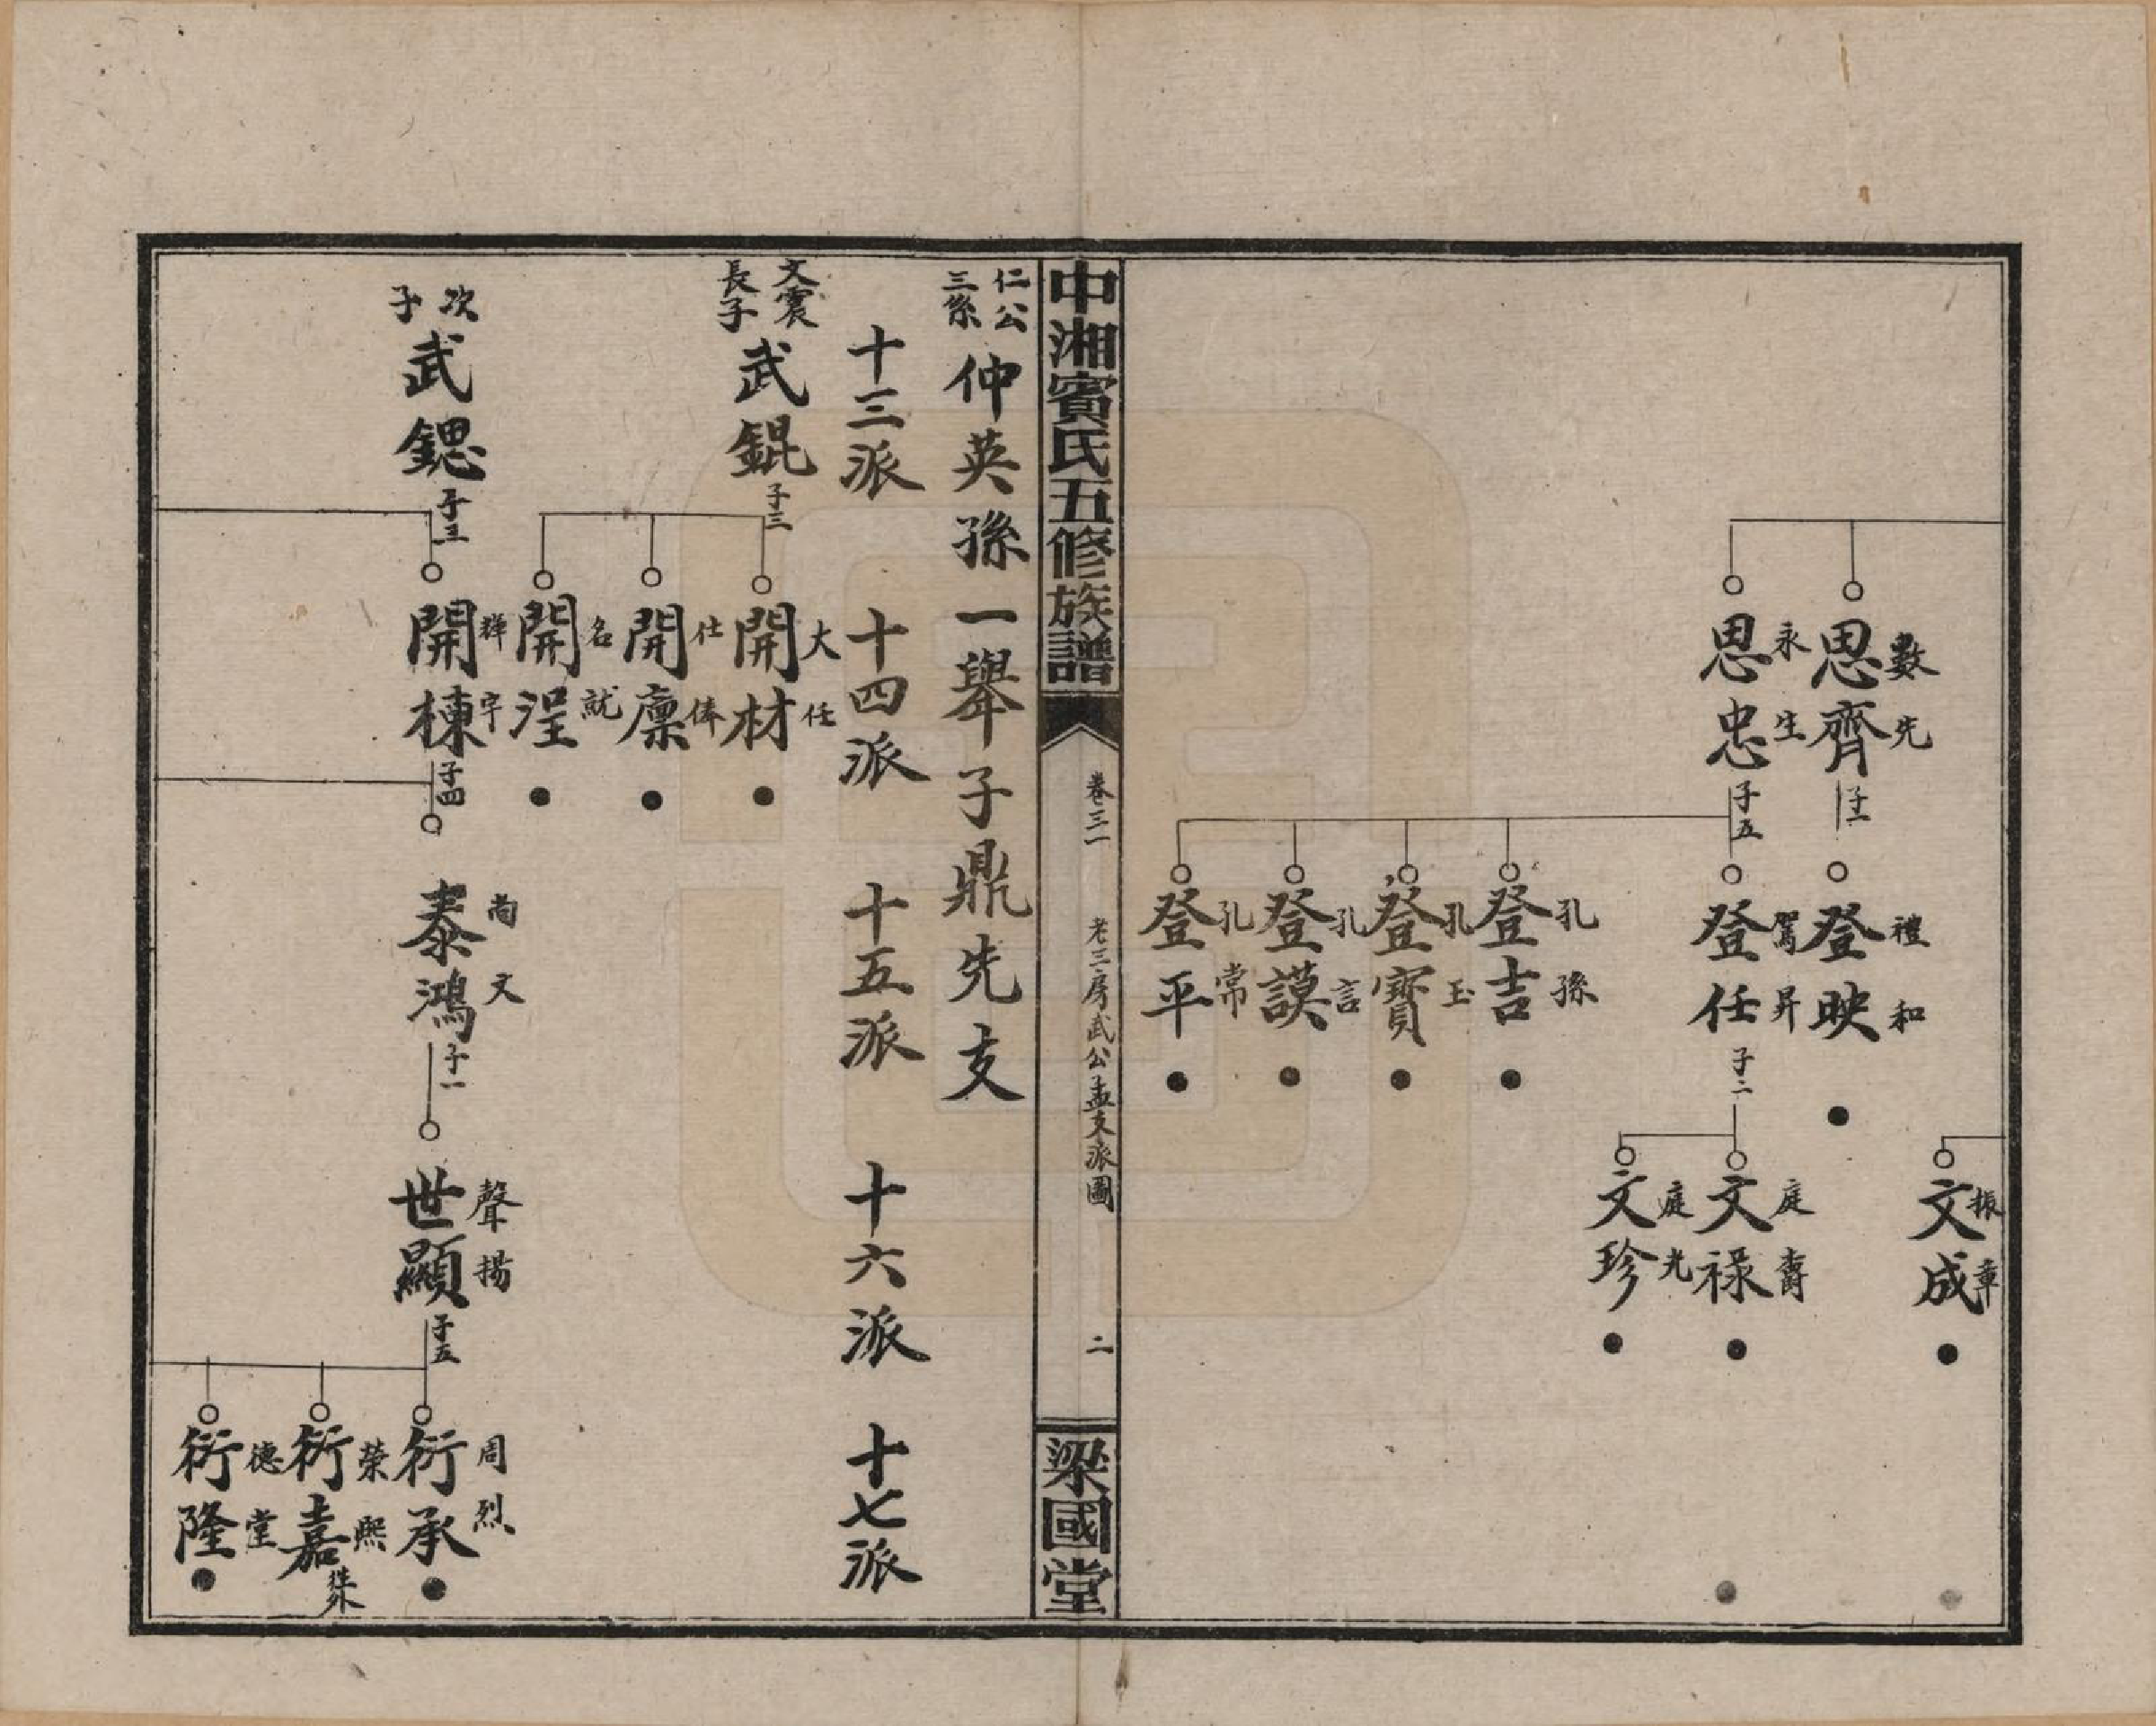 思齊 數先
子一
思忠 永生
子五
登映 禮和
登任 駕昇
子二
登吉 孔孫
登寶 孔玉
登謨 孔言
登平 孔常
文成 振章
文祿 庭壽
文珍 庭光
中湘賓氏五修族譜
卷三一
老三房武公孟支派圖
二
梁國堂
仁公三系
仲英孫一舉子鼎先支
十三派 十四派 十五派 十六派 十七派
文震長子
武錕
子三
開材 大任
開廩 仕俸
開浧 名就
次子
武鍶
子三
開棟 群宇
子四
泰鴻 尚文
子一
世顯 聲揚
子五
衍承 周烈
衍嘉 榮熙
衍隆 德堂